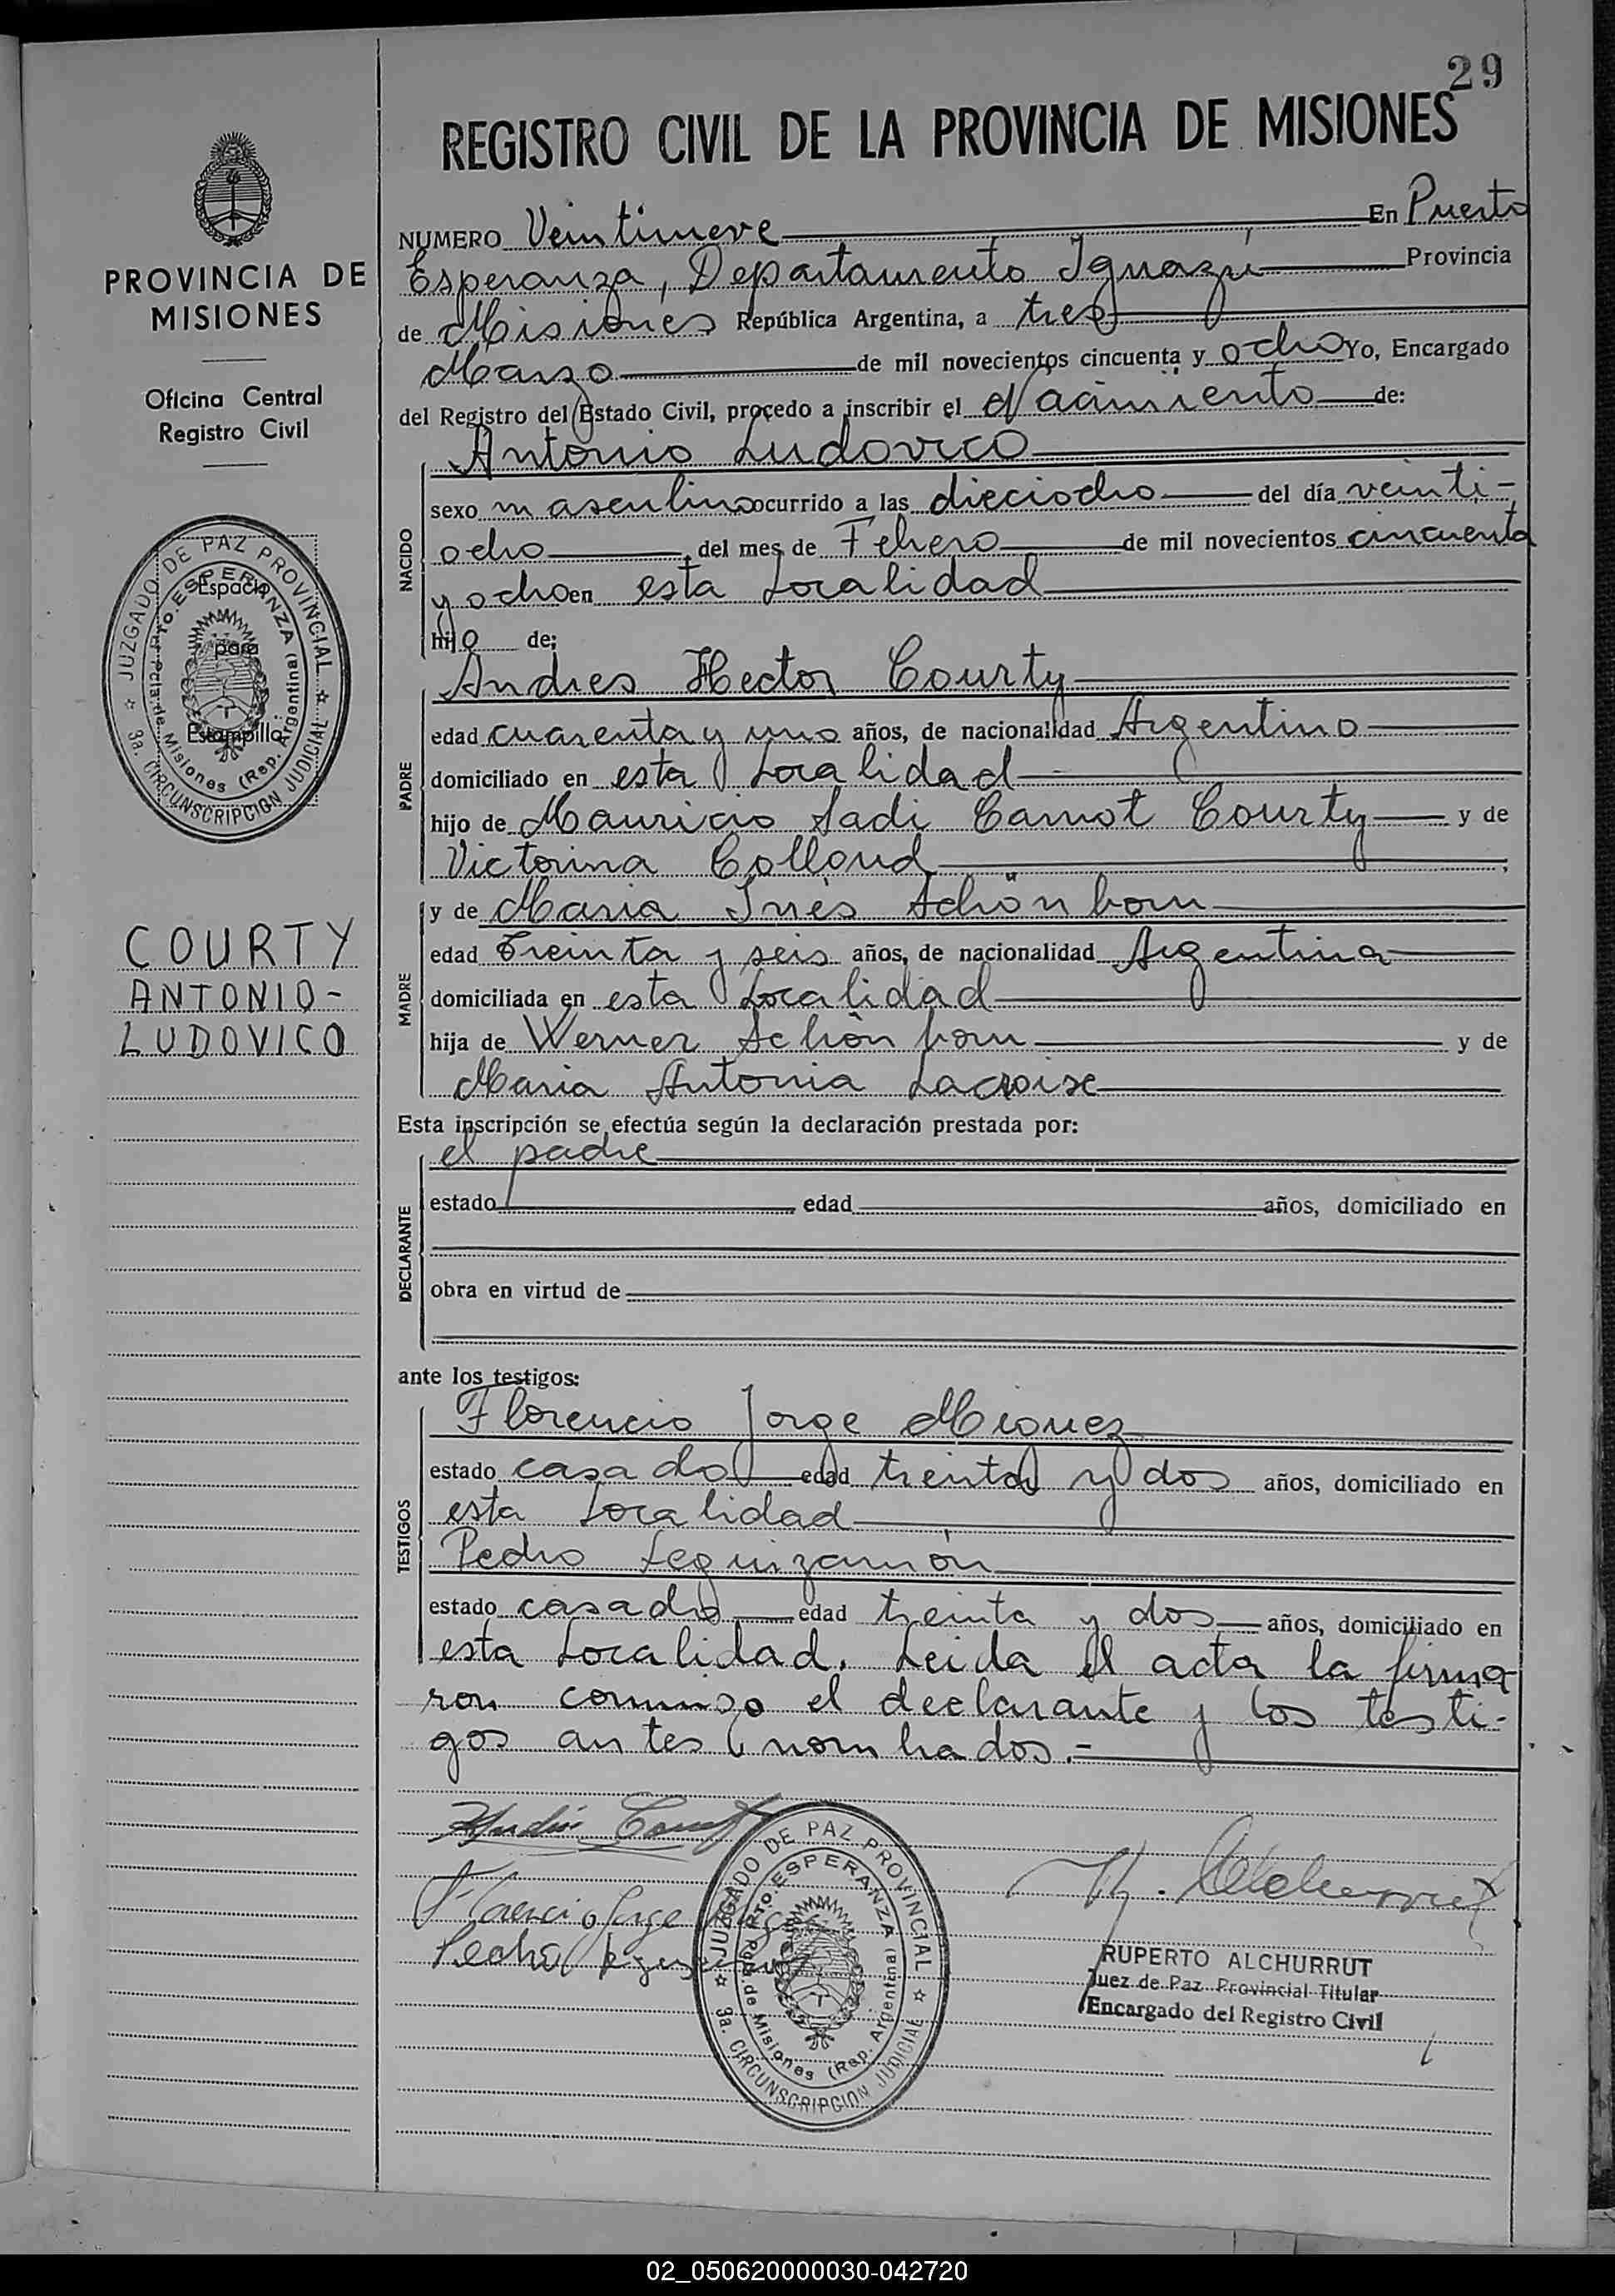 29
REGISTRO CIVIL DE LA PROVINCIA DE MISIONES
PROVINCIA DE
MISIONES
Oficina Central
Registro Civil
JUZGADO DE PAZ PROVINCIAL
PTO. ESPERANZA
Espacio
para
Estampilla
Pcia. de Misiones (Rep. Argentina)
3a. CIRCUNSCRIPCION JUDICIAL
COURTY
ANTONIO-
LUDOVICO
NUMERO Veintinueve En Puerto
Esperanza, Departamento Iguazú Provincia
de Misiones República Argentina, a tres
Marzo de mil novecientos cincuenta y ocho Yo, Encargado
del Registro del Estado Civil, procedo a inscribir el Nacimiento de:
NACIDO
Antonio Ludovico
sexo masculino ocurrido a las dieciocho del día veinti-
ocho del mes de Febrero de mil novecientos cincuenta
y ocho en esta Localidad
hijo de:
PADRE
Andres Hector Courty
edad cuarenta y uno años, de nacionalidad Argentino
domiciliado en esta Localidad
hijo de Mauricio Sadi Carnot Courty y de
Victorina Colloud
MADRE
y de Maria Inés Schönborn
edad treinta y seis años, de nacionalidad Argentina
domiciliada en esta Localidad
hija de Werner Schönborn y de
Maria Antonia Lacroixe
Esta inscripción se efectúa según la declaración prestada por:
DECLARANTE
el padre
estado edad años, domiciliado en
obra en virtud de
ante los testigos:
TESTIGOS
Florencio Jorge
estado casado edad treinta y dos años, domiciliado en
esta Localidad
Pedro Leguizamón
estado casado edad treinta y dos años, domiciliado en
esta Localidad. Leida el acta la firma
ron conmigo el declarante y los testi-
gos antes nombrados.-
Florencio Jorge
Pedro
JUZGADO DE PAZ PROVINCIAL
PTO. ESPERANZA
Pcia. de Misiones (Rep. Argentina)
3a. CIRCUNSCRIPCION JUDICIAL
RUPERTO ALCHURRUT
Juez de Paz Provincial Titular
Encargado del Registro Civil
02_050620000030-042720